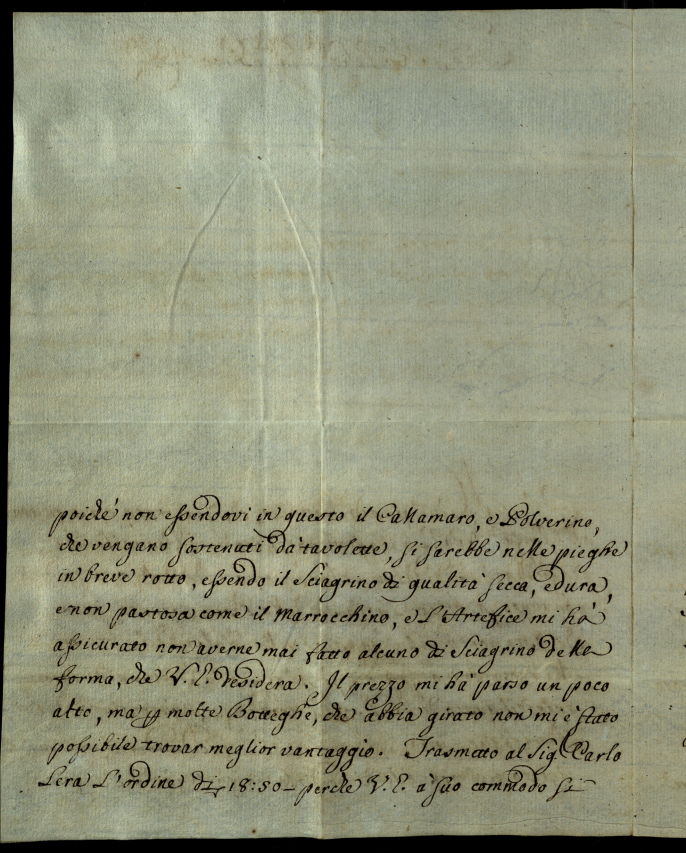 poiché non essendovi in questo il Callamaro, e Polverino,
che vengano sostenuti dà tavolette, si sarebbe nelle pieghe
in breve rotto, essendo il Sciagrino di qualità secca, e dura,
e non pastosa come il Marrocchino, e L'Artefice mi hà
assicurato non averne mai fatto alcuno di Sciagrino della
forma, che V. E. desidera. Il prezzo mi hà parso un poco
alto, ma p molte Botteghe, che abbia girato non mi è stato
possibile trovar meglior vantaggio. Trasmetto al Sig. Carlo
Lera L'ordine di 18:50 – perche V. E. à suo commodo si